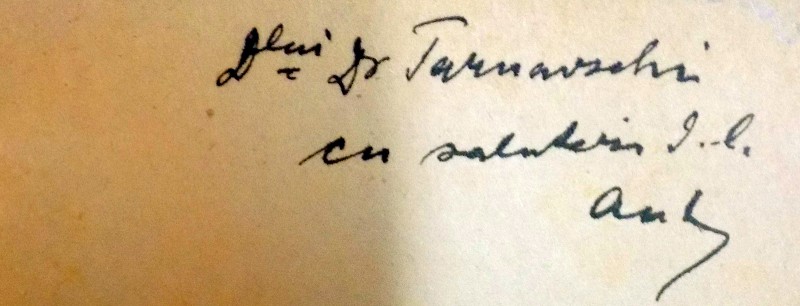 Dlui Dr Tarnavschi
cu salutări
Aut